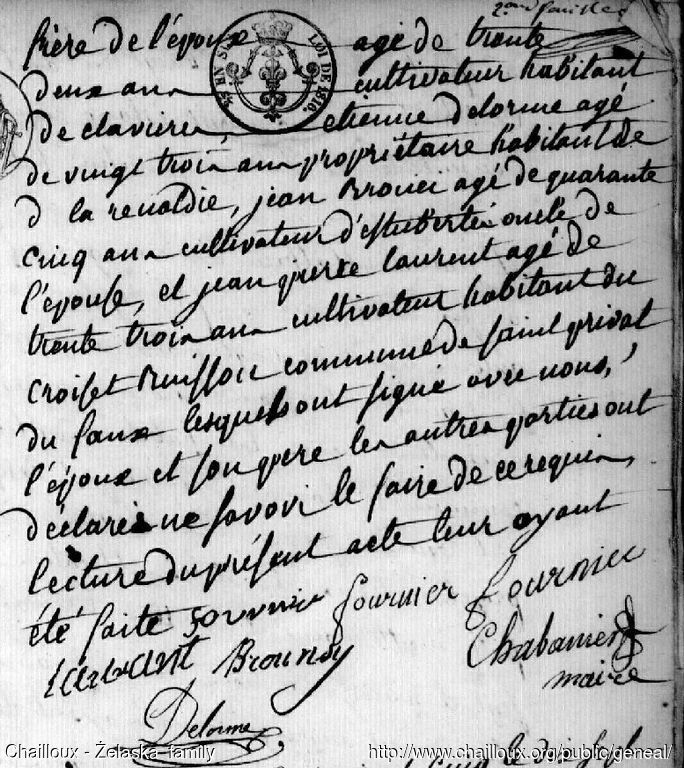 2eme feuillet
frère de l'époux agé de trente
deux ans cultivateur habitant
LOI DE 1816
de claviere, etienne delorme agé
de vingt trois ans propriétaire habitant de
la renaldie, jean Brouei agé de quarante
cinq ans cultivateur oncle de
l'épouse, et jean pierre laurent agé de
trente trois ans cultivateur habitant du
croiset Buisson commune de saint privat
du faux lesquels ont signé avec nous,
l'époux et son pere les autres parties ont
déclarés ne savoir le faire de ce requis,
lecture du présent acte leur ayant
été faite fournier fournier
Laurant Brouny Chabanier
maire
Delorme
Chailloux - Želaska family http://www.chailloux.org/public/geneal/